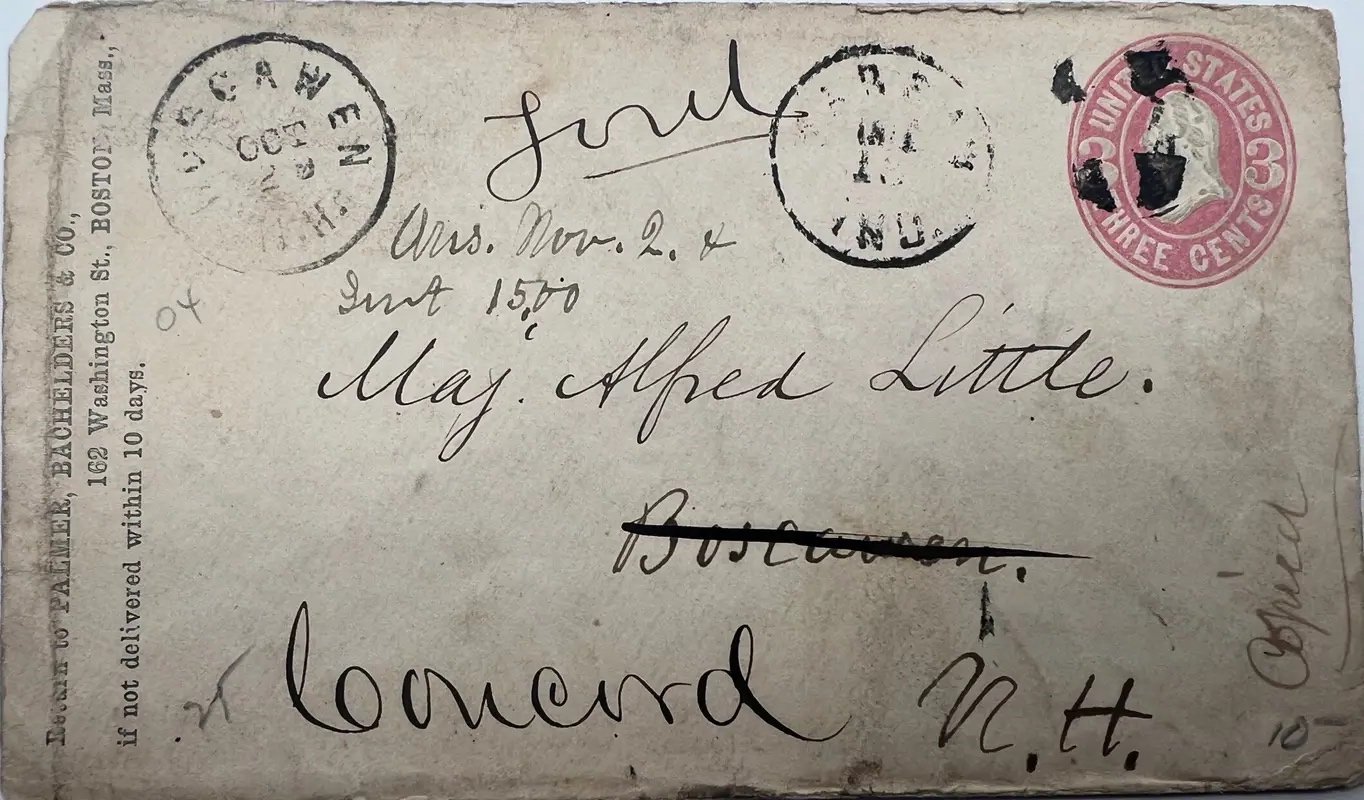 Return to PALMER, BACHELDERS & CO.,
162 Washington St., BOSTON, Mass.,
if not delivered within 10 days.
BOSCAWEN
OCT
N.H.
Ford
IND.
UNITED STATES
3 3
THREE CENTS
Ans. Nov. 2. &
Sent 15,00
Maj. Alfred Little.
Boscawen.
Concord
N.H.
Copied
10